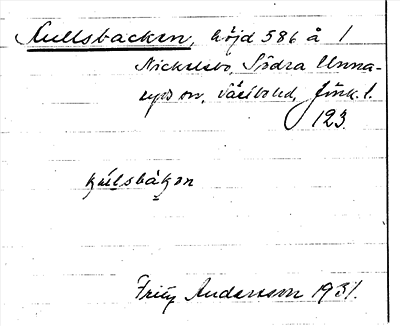 Kullsbacken, höjd 586 å 1
Nickelsbo, Södra Unna-
ryds sn, Västbo hd, Jönk. l.
123.
kúlsbákon
Fritz Andersson 1931.